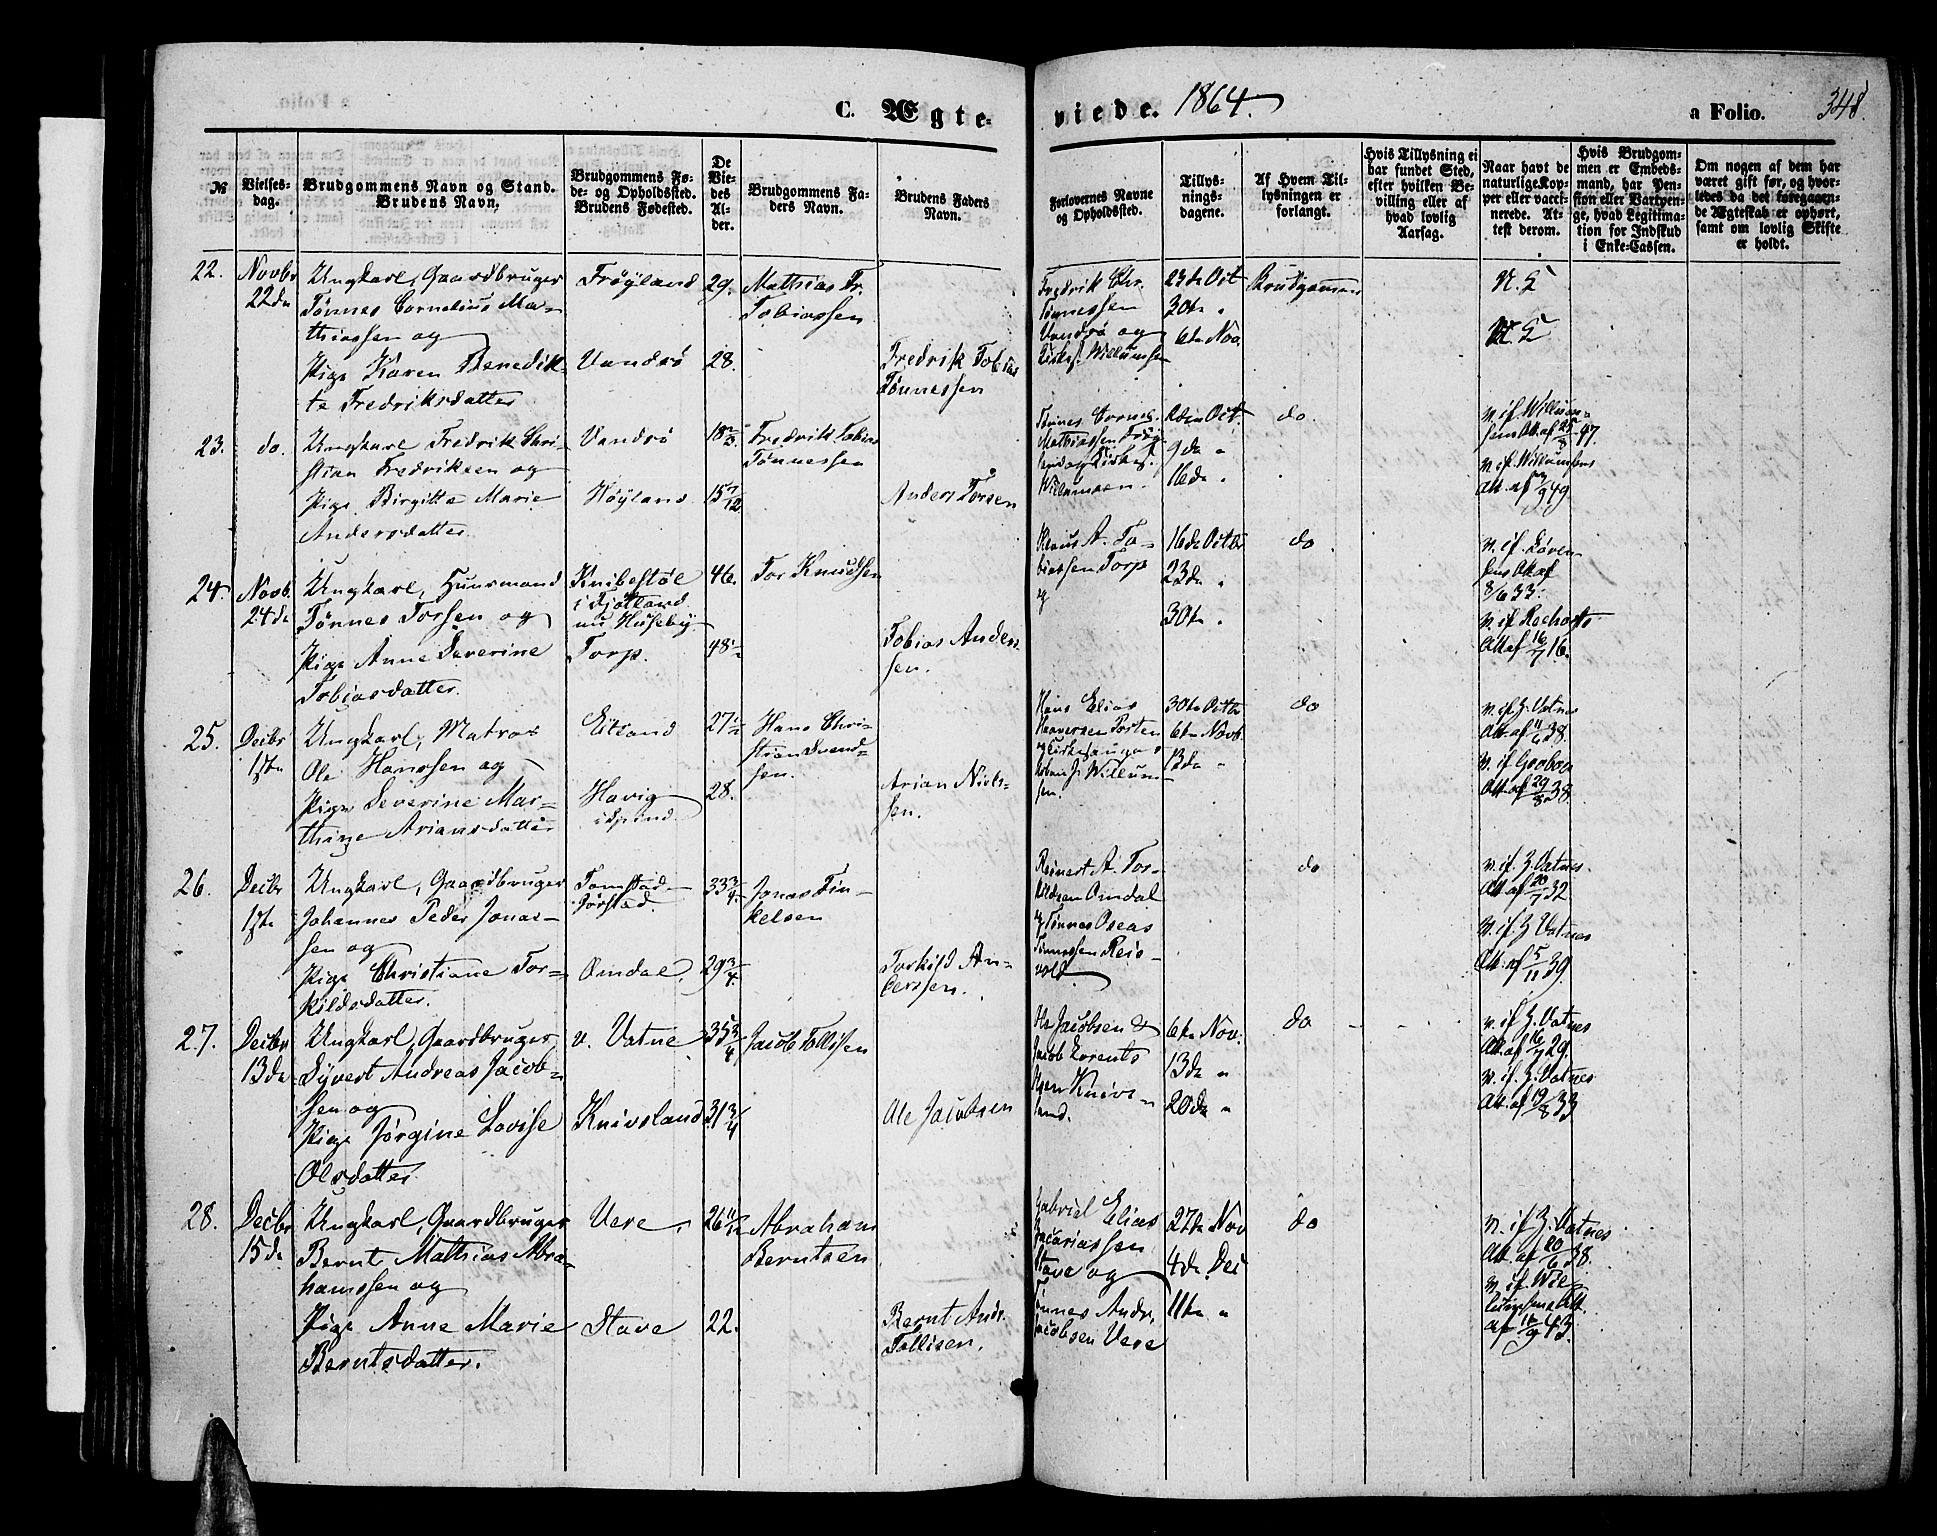 C. Ægte-
viede. 1864.
a Folio. 348.
№
Vielses-
dag.
Brudgommens Navn og Stand.
Brudens Navn.
Brudgommens Fø-
de- og Opholdssted.
Brudens Fødested.
De
Vie-
des
Al-
der.
Brudgommens Fa-
ders Navn.
Brudens Faders
Navn.
Forlovernes Navne
og Opholdssted.
Tillys-
nings-
dagene.
Af Hvem Til-
lysningen er
forlangt.
Hvis Tillysning ei
har fundet Sted,
efter hvilken Be-
villing eller af
hvad lovlig
Aarsag.
Naar havt de
naturlige Kop-
per eller vacci-
nerede. At-
test derom.
Hvis Brudgom-
men er Embeds-
mand, har Pen-
sion eller Vartpen-
ge, hvad Legitima-
tion for Indskud
i Enke-Cassen.
Om nogen af dem har
været gift før, og hvor-
ledes da det foregaaen-
de Ægteskab er ophørt,
samt om lovlig Skifte
er holdt.
22.
Novbr
22de
Ungkarl, Gaardbruger
Tønnes Cornelius Ma-
thiassen og
Pige Karen Benedik-
te Fredriksdatter
Frøyland
Vandrø
29.
28.
Mathias Fr.
Tobiassen
Fredrik Tobias
Tønnessen
Fredrik Chr.
Tønnessen
Vandrø og
Willumsen
23de Oct
30te "
6te Nov.
Brudgommen
N. S
N. S
23.
do.
Ungkarl Fredrik Chri-
stian Fredriksen og
Pige Birgitte Marie
Andersdatter
Vandrø
Høyland
15 7/12
Fredrik Tobias
Tønnessen
Anders Torsen
Tønnes Cornel.
Mathiassen Frøy-
land og
Willumsen.
2den Oct.
9de "
16de "
do.
v. if. Willum-
sens Att. af 25/8 47.
v. if. Willumsens
Att. af 49
24.
Novb.
24de
Ungkarl, Huusmand
Tønnes Torsen og
Pige Anne Severine
Tobiasdatter.
Knibestøl
i Fjotland
nu Huseby
Torp.
46.
48 1/2
Tor Knudsen
Tobias Anders-
sen.
A. To-
biassen Torp
og
16de Octbr
23de "
30te "
do
v. if. Løven-
Att af
8/6 33.
v. if.
Att af 16/7 16.
25.
Decbr
1ste
Ungkarl, Matros
Ole Hanssen og
Pige Severine Mar-
thine Ariansdatter
Eitland
Havig
i Spind
27 1/2
28.
Hans Chri-
stian Svend-
sen.
Arian Niels-
sen.
Hans Elias
Haaversen
Willum-
sen.
30te Octbr
6te Novb.
13de "
do
v. if. Z. Vatnes
Att af 11/6 38.
v. if.
Att. af 29/8 38.
26.
Decbr
1ste
Ungkarl, Gaardbruger
Johannes Peder Jonas-
sen og
Pige Christiane Tor-
kildsdatter.
Tomstad
Jørstad.
Omdal
33 3/4
29 3/4
Jonas Tøn-
kelsen
Torkild An-
derssen.
Reinert A. Tor-
kildsen Omdal
og Tønnes Oseas
Tønnessen Reis-
vold
do
v. if. Z. Vatnes.
Att af 20/7 32
v. if. Z. Vatnes
Att. af 5/11 39.
27.
Decbr
13de
Ungkarl, Gaardbruger
Syvert Andreas Jacob-
sen og
Pige Jørgine Lovise
Olsdatter
v. Vatne
Knivsland
35 3/4
31 3/4
Jacob Tollissen
Ole Jacobsen
Ole Jacobsen &
Jacob Lorents
Knivs-
land.
6te Nov.
13de "
20de "
do
v. if. Z. Vatnes
Att. af 16/7 29.
v. if. Z. Vatnes
Att. af 19/8 33
28.
Decbr
15de
Ungkarl, Gaardbruger
Bernt Mathias Abra-
hamssen og
Pige Anne Marie
Berntsdatter.
Vere
Stave
22.
Abraham
Berntsen
Bernt Andr.
Tollisen.
Gabriel Elias
Zacariassen
Stave og
Tønnes Andr.
Jacobsen Vere
27de Nov
4de Dec
11te "
do
v. if. Z. Vatnes
Att. af 20/6 38.
v. if.
Att.
af 16/9 43.